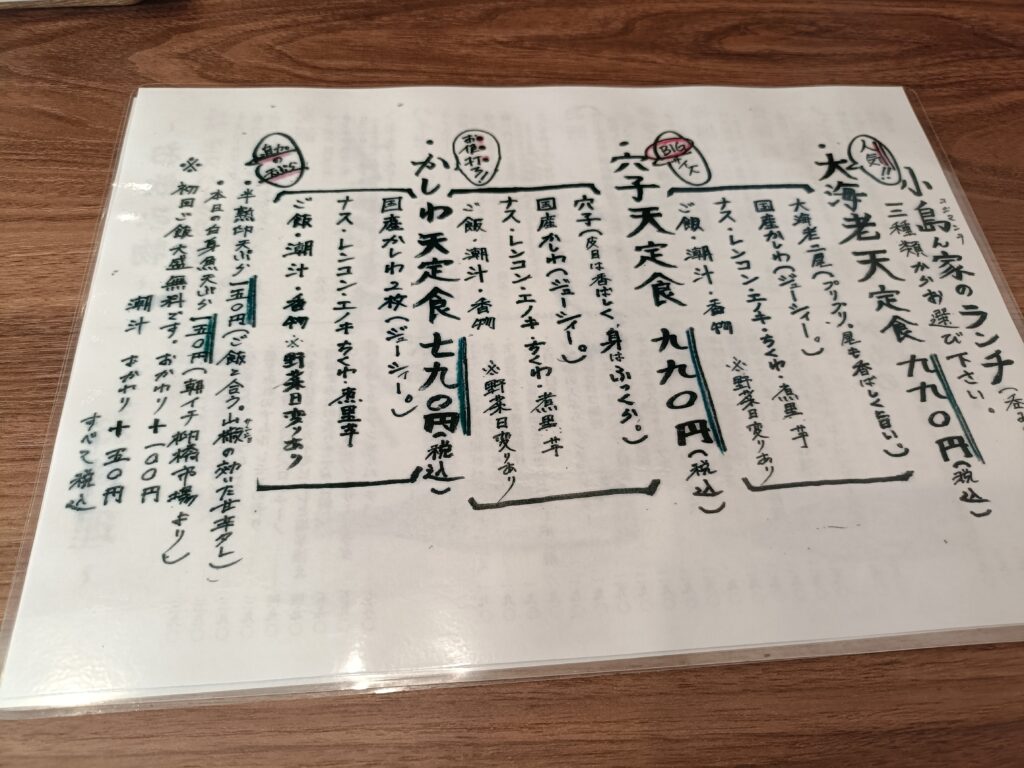 小島ん家のランチ
コジマンち
三種類からお選び下さい。
人気!!
・大海老天定食 九九〇円(税込)
大海老二尾(プリプリ。尾も香ばしく旨い。)
国産かしわ(ジューシィー。)
ナス・レンコン・エノキ・ちくわ・煮里芋
ご飯・潮汁・香物 ※野菜日変りあり
BIGサイズ
・穴子天定食 九九〇円(税込)
穴子(皮目は香ばしく、身はふっくら。)
国産かしわ(ジューシィー。)
ナス・レンコン・エノキ・ちくわ・煮里芋
ご飯・潮汁・香物 ※野菜日変りあり
お値打ち!
・かしわ天定食 七九〇円(税込)
国産かしわ2枚(ジューシィー。)
ナス・レンコン・エノキ・ちくわ・煮里芋
ご飯・潮汁・香物 ※野菜日変りあり
追加の天ぷら
・半熟卵天ぷら 一五〇円(ご飯と合う。山椒の効いた甘辛タレ)
・本日の白身魚天ぷら 一五〇円(朝イチ柳橋市場より)
※ 初回ご飯大盛無料です。おかわり+一〇〇円
潮汁 おかわり+一五〇円
すべて税込